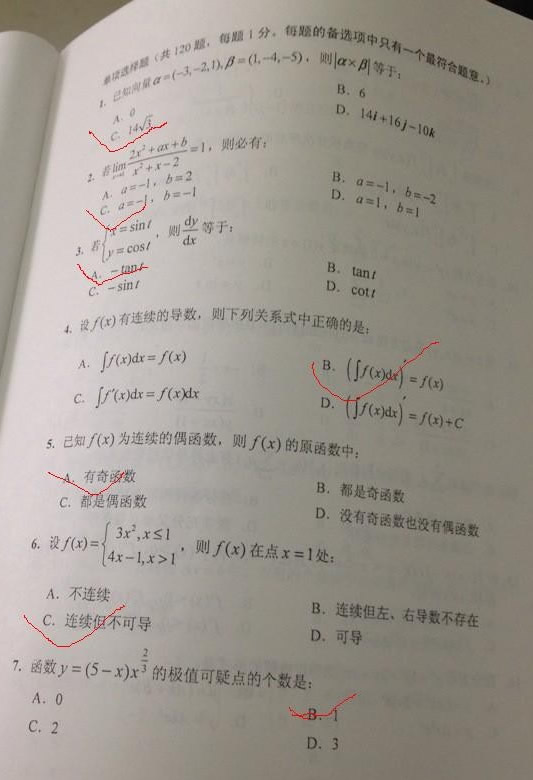 单项选择题（共 120 题，每题 1 分。每题的备选项中只有一个最符合题意。）
1. 已知向量 α=(−3,−2,1), β=(1,−4,−5)，则|α×β|等于：
A. 0 B. 6
C. 14√3 D. 14i+16j−10k
2. 若lim(x→1) (2x²+ax+b)/(x²+x−2)=1，则必有：
A. a=−1，b=2 B. a=−1，b=−2
C. a=−1，b=−1 D. a=1，b=1
3. 若{x=sint, y=cost，则dy/dx等于：
A. −tant B. tant
C. −sint D. cott
4. 设f(x)有连续的导数，则下列关系式中正确的是：
A. ∫f(x)dx=f(x) B. (∫f(x)dx)′=f(x)
C. ∫f′(x)dx=f(x)dx D. (∫f(x)dx)′=f(x)+C
5. 已知f(x)为连续的偶函数，则f(x)的原函数中：
A. 有奇函数 B. 都是奇函数
C. 都是偶函数 D. 没有奇函数也没有偶函数
6. 设f(x)={3x²,x≤1; 4x−1,x>1，则f(x)在点x=1处：
A. 不连续 B. 连续但左、右导数不存在
C. 连续但不可导 D. 可导
7. 函数y=(5−x)x^(2/3)的极值可疑点的个数是：
A. 0 B. 1
C. 2 D. 3